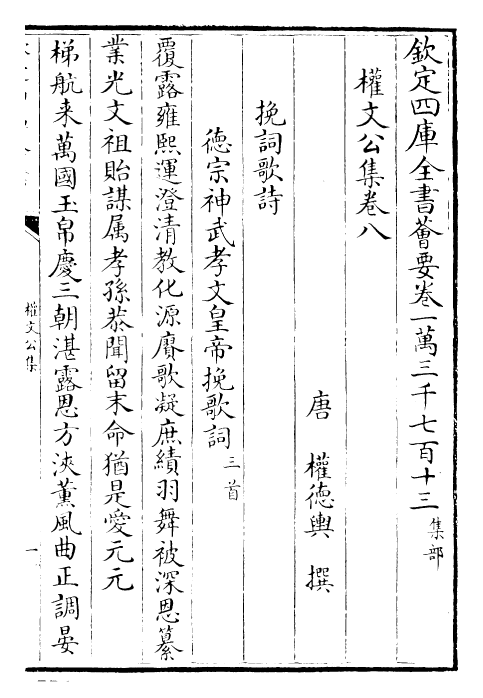 欽定四庫全書薈要卷一萬三千七百十三 集部
權文公集卷八
唐 權德輿 撰
挽詞歌詩
德宗神武孝文皇帝挽歌詞 三首
覆露雍熙運澄清教化源賡歌凝庶績羽舞被深恩纂
業光文祖貽謀属孝孫恭聞留末命猶是愛元元
梯航来萬國玉帛慶三朝湛露恩方浹薰風曲正調晏
權文公集
一